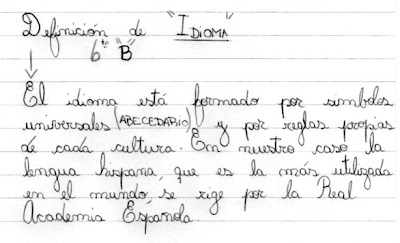 Definición de "IDIOMA"
6to "B"
El idioma está formado por símbolos
universales (ABECEDARIO) y por reglas propias
de cada cultura. En nuestro caso la
lengua hispana, que es la más utilizada
en el mundo, se rige por la Real
Academia Española.